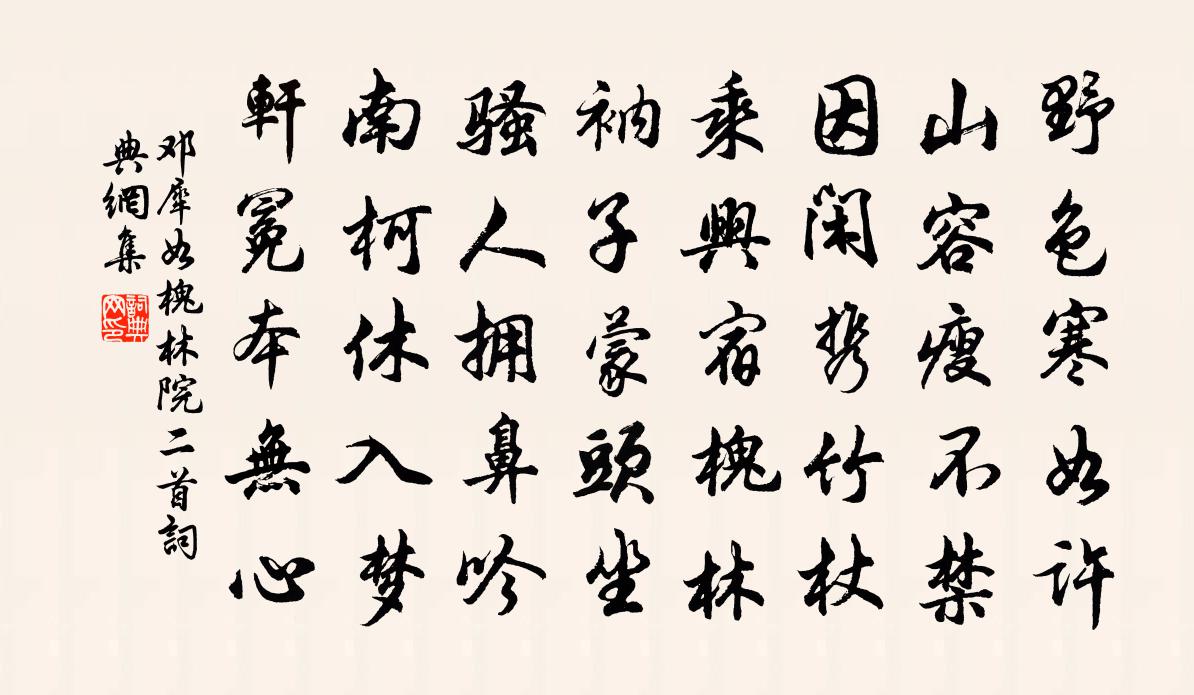 野色寒如许
山容瘦不禁
因闲携竹杖
乘興宿槐林
衲子蒙頭坐
骚人拥鼻吟
南柯休入梦
軒冕本無心
邓犀如槐林院二首詞
典網集
詞典网印